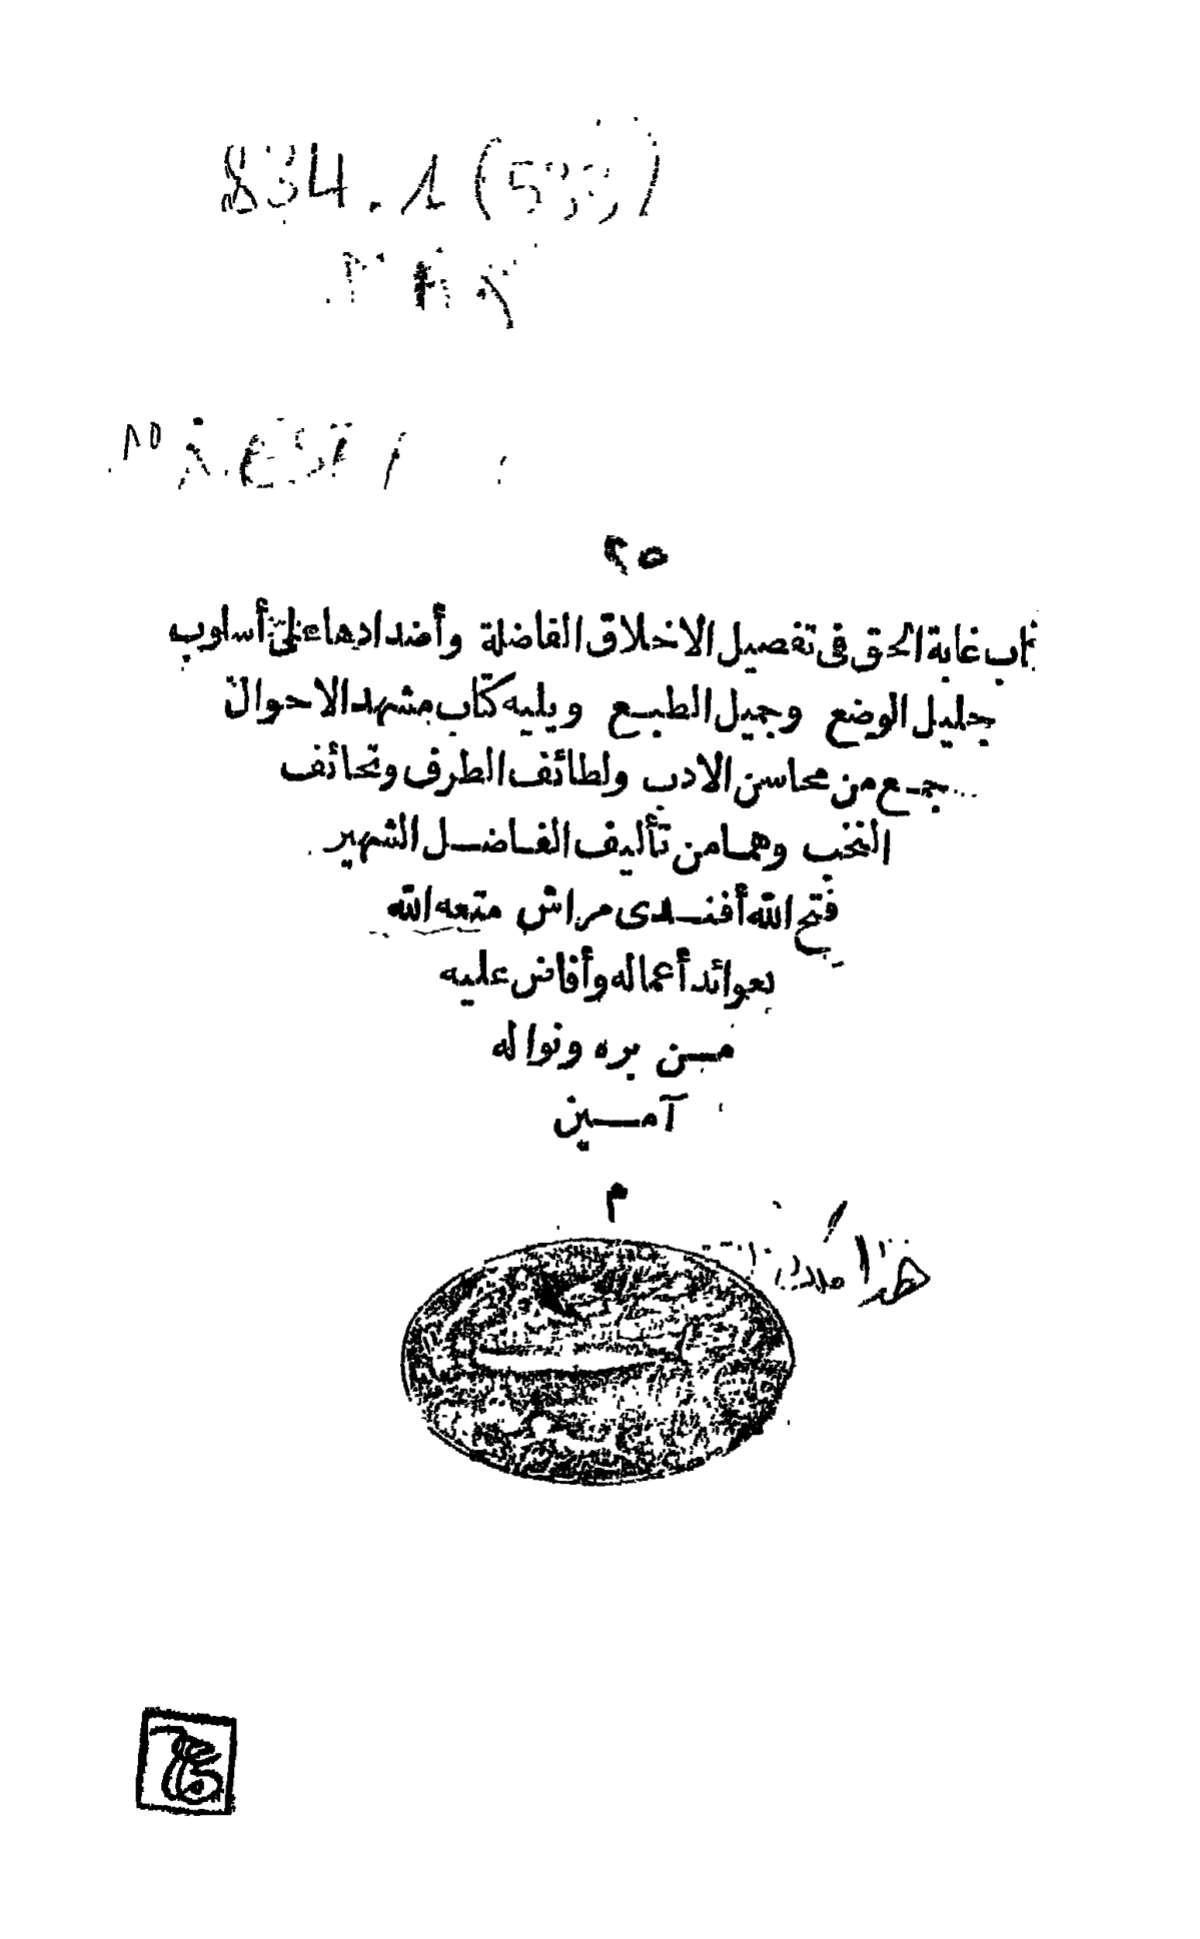 834.1 (533)
٢٥
كتاب غاية الحق فى تفصيل الاخلاق الفاضلة وأضدادها على أسلوب
جليل الوضع وجميل الطبع ويليه كتاب مشهد الاحوال
جمع من محاسن الادب ولطائف الطرف وتحائف
النخب وهما من تأليف الفاضل الشهير
فتح الله أفندى مراش متعه الله
بعوائد أعماله وأفاض عليه
من بره ونواله
آمين
م
هذا